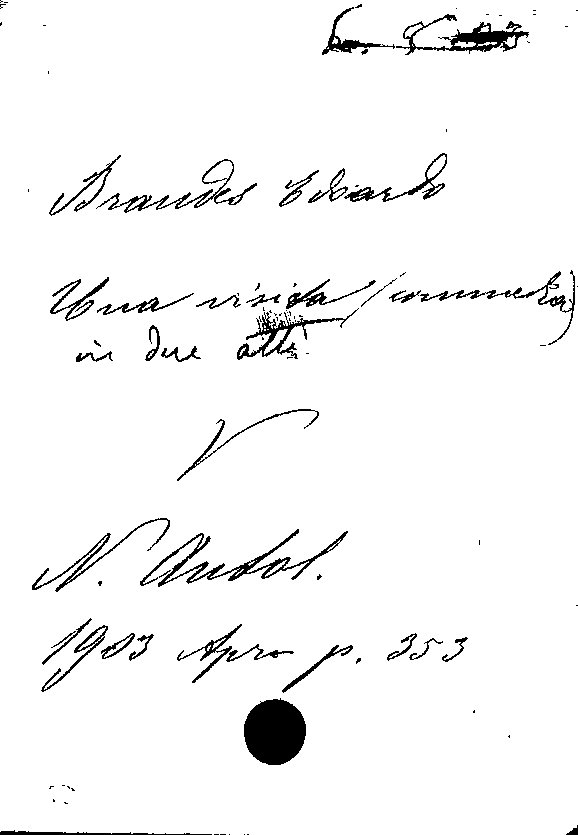 Brandes Edoardo
Una visita (commedia)
in due atti
V
N. Antol.
1903 Apr. p. 353